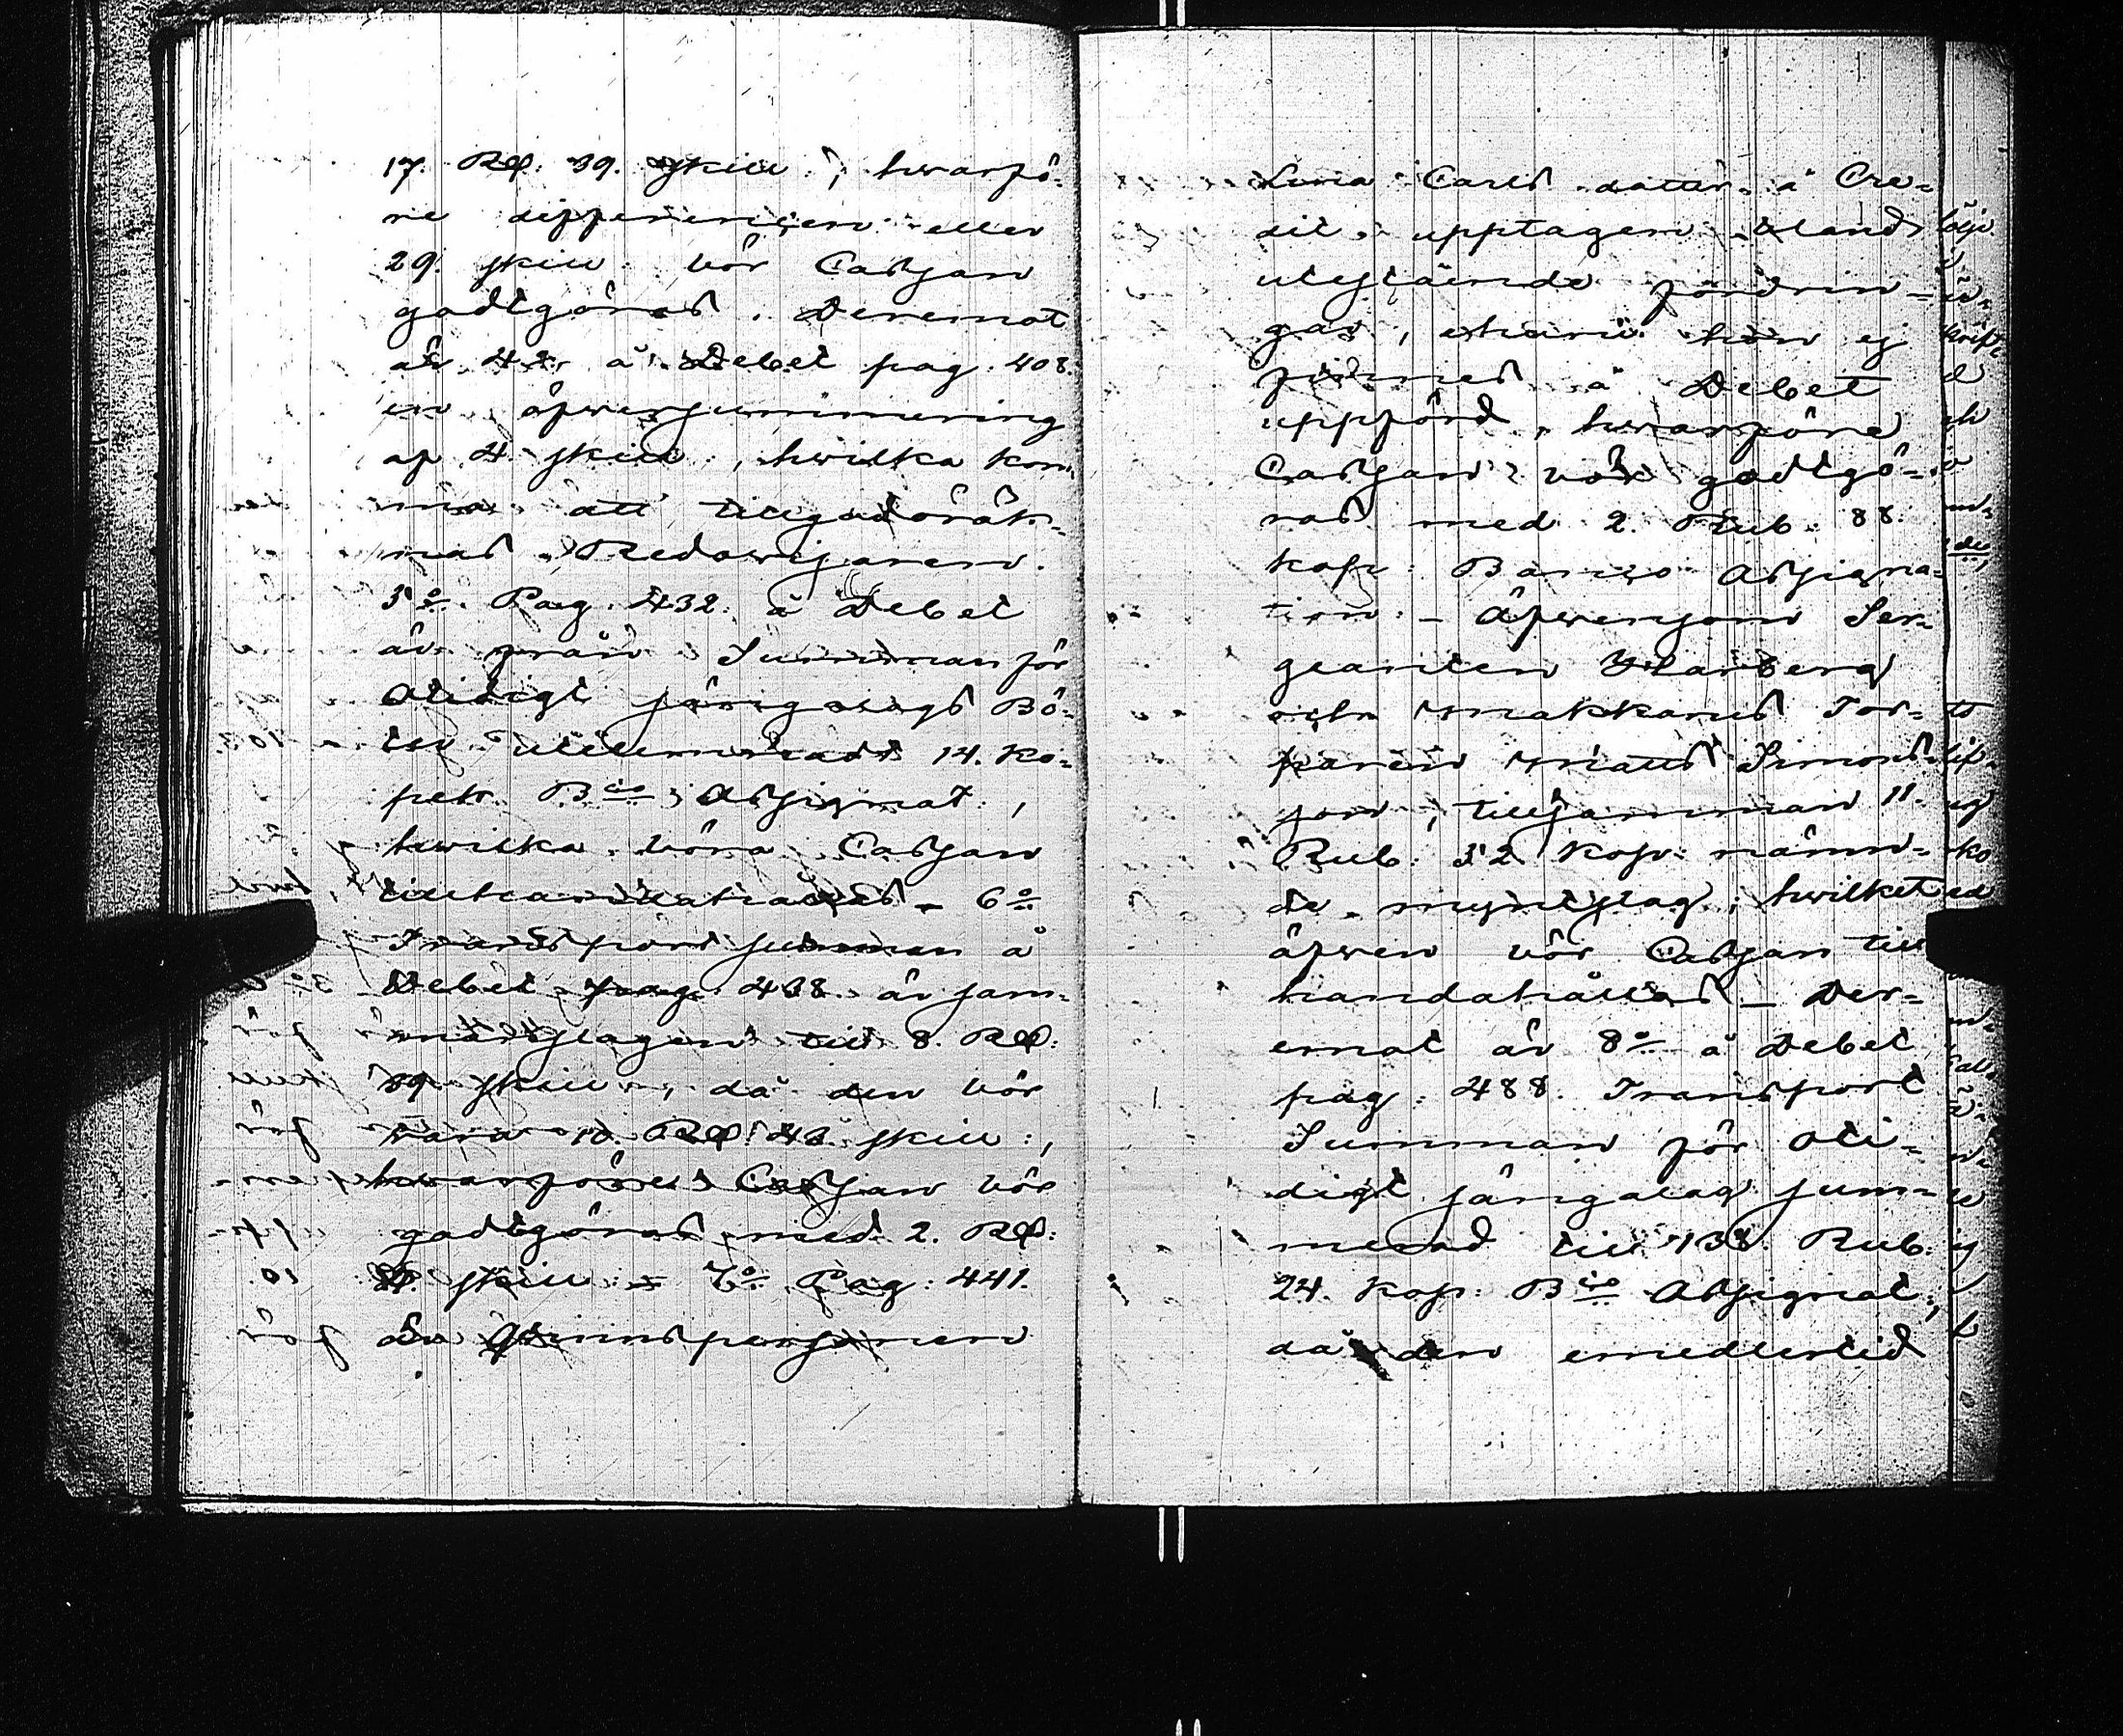 17. Rd. 39. skill:, hvarfö-
re differencen eller
29. skill: bör Cassan
godtgöras. Deremot
är 4:o å Debet pag: 408
en öfversummering
af 4 skill:, hvilka kom-
ma att tillgodoräk-
nas Redovisaren.
5:o Pag: 432. å Debet
är från Summan för
otidigt sängalags Bö-
ter utelemnadt 14. Ko-
pek B:co Assignat:,
hvilka böra Cassan
tillhandahållas – 6:o
Transport summan å
Debet pag: 438. är sam-
manslagen till 8. Rd:
39 skill:, då den bör
vara 10. Rd: 43 skill:,
hvarföre Cassan bör
godtgöras med 2. Rd:
4. skill: – 7:o Pag: 441.
är Qvinnspersonen
Lovisa Carls dotter å Cre-
dit upptagen bland
utestående fordrin-
gar, ehuru hon ej
finnes å Debet
uppförd, hvarföre
Cassan bör godtgö-
ras med 2. Rub: 88.
kop: Banco Assigna-
tion: – Äfvensom Ser-
geanten Warberg
och enakkanes Tor-
paren Matts Simons-
son, tillsamman 11.
Rub: 52 Kop: nämn-
de myntslag, hvilket
äfven bör Cassan till
handahållas – Der-
emot är 8:o å Debet
pag: 488. Transport
Summan för oti-
digt sängalag sum-
merad till 138. Rub:
24. Kop: B:co Assignat:,
då den emedlertid